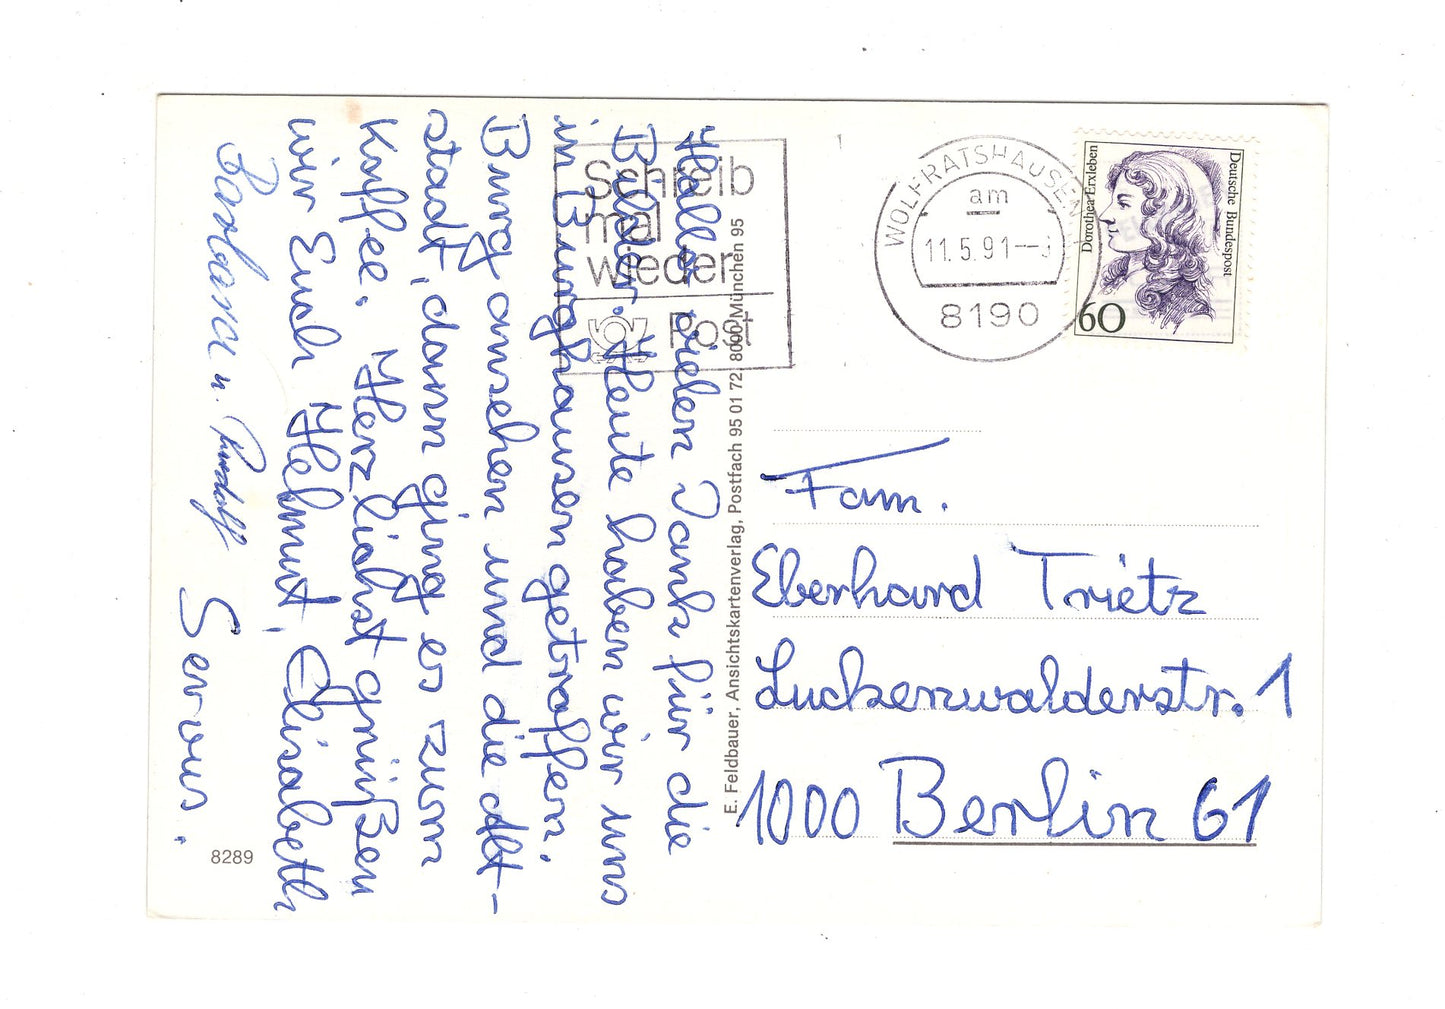 Hallo, vielen Dank für die
Bilder. Heute haben wir uns
in Burghausen getroffen.
Burg ansehen und die Alt-
stadt, dann ging es zum
Kaffee. Herzlichst grüßen
wir Euch Helmut, Elisabeth
Barbara u. Rudolf
Servus.
8289
E. Feldbauer, Ansichtskartenverlag, Postfach 95 01 72, 8000 München 95
Schreib
mal
wieder
Post
WOLFRATSHAUSEN
am
11.5.91
8190
Dorothea Erxleben
Deutsche Bundespost
60
Fam.
Eberhard Trietz
Luckenwalderstr. 1
1000 Berlin 61